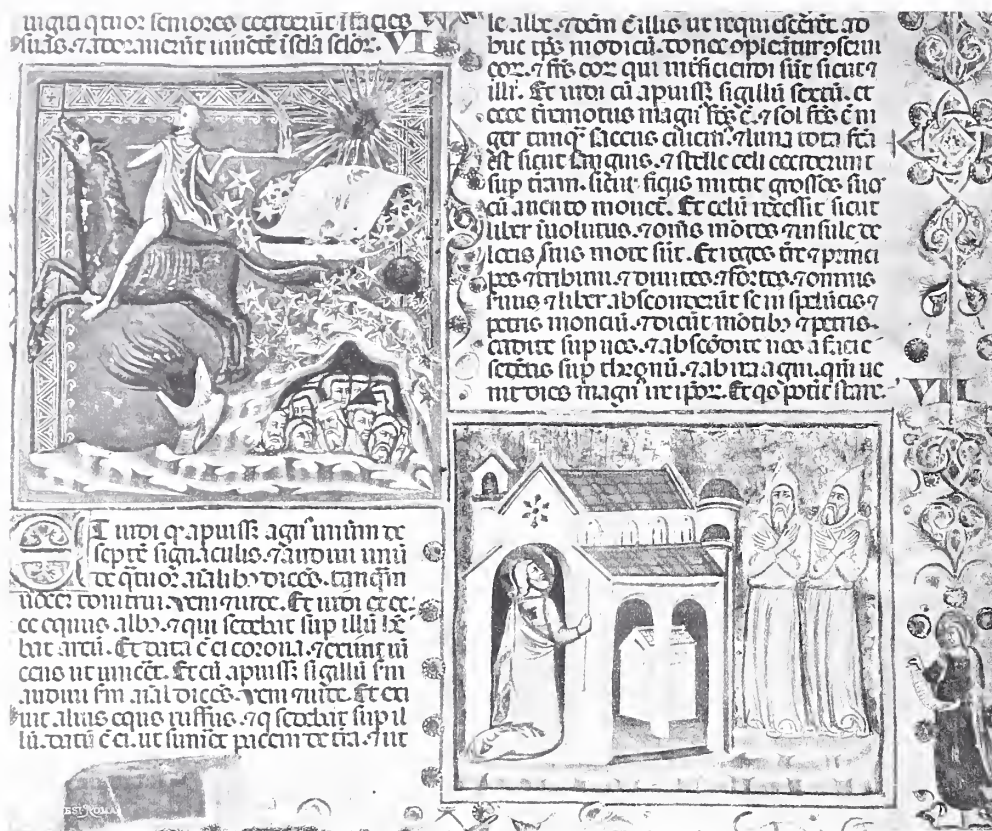 uigīti q̄tuor seniores cecider̄ūt ī facies
suas. ⁊ adorauer̄ūt uiuēte ī sc̄la sc̄lor. VI
ET uidi q. apuiss; agn' unūm de
septē signaculis. ⁊ audiui unū
de q̄tuor aīalib; dicēs. tanq̄m
uocē tonitrui. veni ⁊ uide. Et uidi et ec
ce equus alb;. ⁊ qui sedebat sup illū hē
bat arcū. Et data ē ei corona. ⁊ exiuit ui
cens ut uincēt. Et cū apuiss; sigillū sm̄
audiui sm̄ aīal dicēs. veni ⁊ uide. Et exi
uit alius equs ruffus. ⁊ q sedebat sup il
lū. datū ē ei. ut sumēt pacem de tr̄a. ⁊ ut
le albe. ⁊ dc̄m ē illis ut requiescerēt ad
huc tp̄s modicū. donec ɔpleātur ɔserui
eor. ⁊ fr̄s eor qui int̄ficiēdi sūt sicut ⁊
illi. Et uidi cū apuiss; sigillū sextū. et
ecce t̄remotus magn' fc̄s ē. ⁊ sol fc̄s ē ni
ger tanq̄ saccus cilicin'. ⁊ luna tota fc̄a
est sicut sanguis. ⁊ stelle celi ceciderunt
sup t̄ram. sicut ficus mittit grossos suos
cū a uento mouet̄. Et celū recessit sicut
liber īuolutus. ⁊ om̄is mōtes ⁊ insule de
locis suis mote sūt. Et reges tr̄e ⁊ princi
pes ⁊ tribuni. ⁊ diuites ⁊ fortes. ⁊ omnis
seruus ⁊ liber absconderūt se in spelūcis ⁊
petris monciū. ⁊ dicūt mōtib; ⁊ petris.
cadite sup nos. ⁊ abscōdite nos a facie
sedētis sup thronū. ⁊ ab ira agni. qm̄ ue
nit dies magn' ire ip̄or. Et q̄s potit stare. VII
EST. ROMA